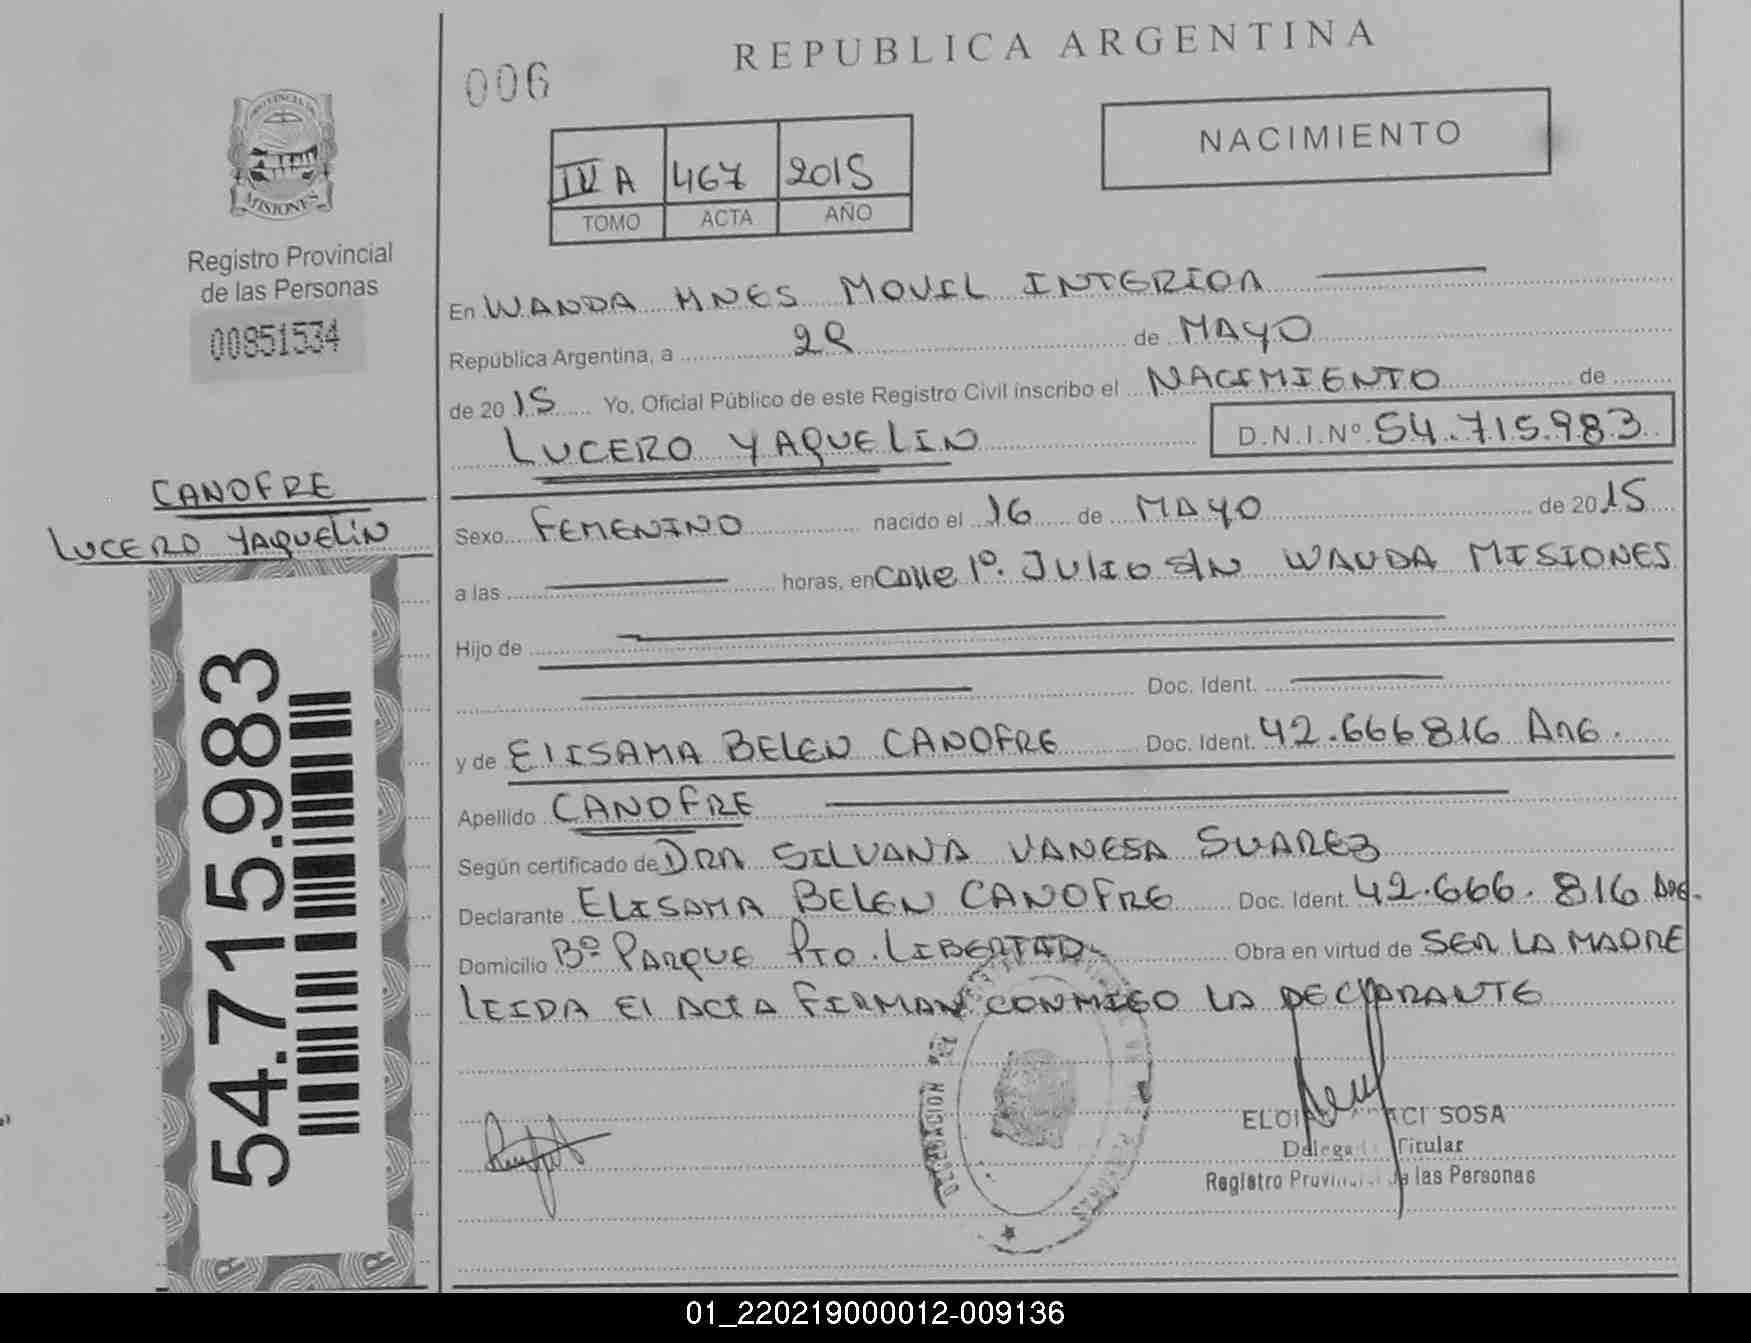 REPUBLICA ARGENTINA
006
NACIMIENTO
IV A 467 2015
TOMO ACTA AÑO
PROVINCIA DE
MISIONES
Registro Provincial
de las Personas
00851534
En WANDA MNES MOVIL INTERIOR
República Argentina, a 28 de MAYO
de 2015 Yo, Oficial Público de este Registro Civil inscribo el NACIMIENTO de
LUCERO YAQUELIN D.N.I.Nº 54.715.983
CANOFRE
LUCERO YAQUELIN
Sexo FEMENINO nacido el 16 de MAYO de 2015
a las horas, en Calle 1º. JULIO S/N WANDA MISIONES
Hijo de
Doc. Ident.
y de ELISAMA BELEN CANOFRE Doc. Ident. 42.666816 ARG.
Apellido CANOFRE
Según certificado de DRA SILVANA VANESA SUAREZ
Declarante ELISAMA BELEN CANOFRE Doc. Ident. 42.666.816 ARG.
Domicilio Bº PARQUE PTO. LIBERTAD Obra en virtud de SER LA MADRE
LEIDA El ACTA FIRMAN CONMIGO LA DECLARANTE
54.715.983
SOSA
Titular
Registro de las Personas
DELEGACION
01_220219000012-009136